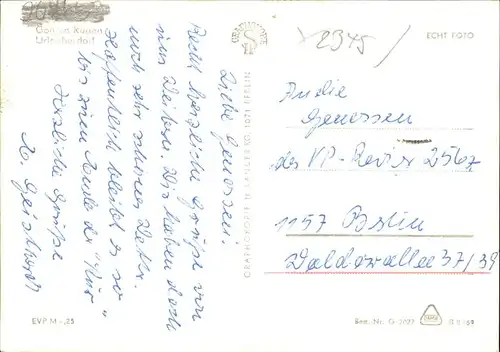 Göhren Rügen
Urlauberdorf
Liebe Genossen!
Recht herzliche Grüße von
uns Weibern. Wir haben doch
noch sehr schönes Wetter.
Hoffentlich bleibt es so
bis zum Ende der "Kur"
Herzliche Grüße
GRAPHOKOPIE H. SANDER KG 1071 BERLIN
GRAPHOKOPIE
2345
ECHT FOTO
An die
Genossen
des VP-Revier 256
1157 Berlin
Waldowallee 37/39
EVP M -,25
Best.-Nr. G 2927